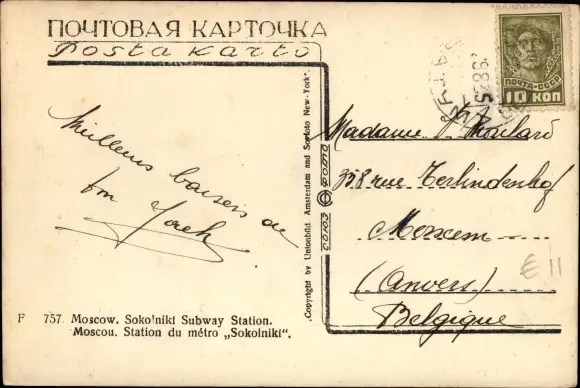 ПОЧТОВАЯ КАРТОЧКА
Poŝta karto
ПОЧТА-СССР
10 КОП
Meilleurs baisers de
ton Jack
Madame
358 rue Terlindenhof
Merxem
(Anvers)
Belgique
€ 11
Copyright by Unionbild Amsterdam and Sovfoto New-York".
СОЮЗ ФОТО
F 757. Moscow. Sokolniki Subway Station.
Moscou. Station du métro „Sokolniki".